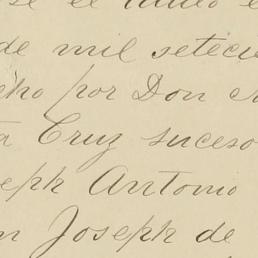 se el titulo e
de mil setecie
cho por Don
ta Cruz suceso
seph Antonio
n Joseph de